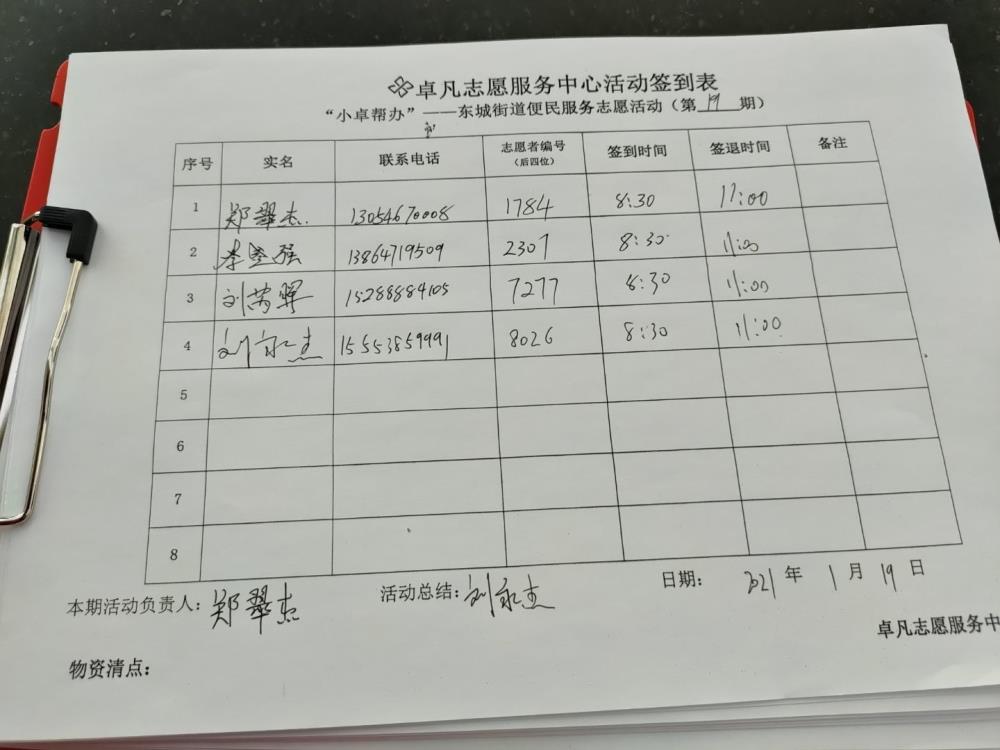 卓凡志愿服务中心活动签到表
“小卓帮办”——东城街道便民服务志愿活动（第 19 期）
序号 实名 联系电话 志愿者编号（后四位） 签到时间 签退时间 备注
1 郑翠杰 13054670008 1784 8:30 11:00
2 李坚强 13864719509 2307 8:30 11:00
3 刘荣军 15288884105 7277 8:30 11:00
4 刘永杰 15553859991 8026 8:30 11:00
5
6
7
8
本期活动负责人：郑翠杰 活动总结：刘永杰 日期：2021 年 1 月 19 日
卓凡志愿服务中
物资清点：